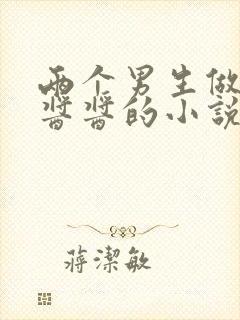 两个男生做
酱酱的小說
蔣潔敏